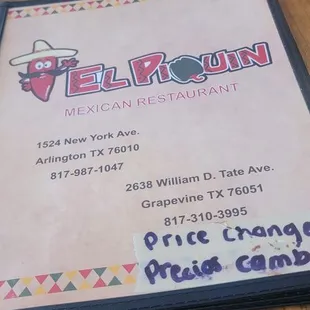 EL PIQUIN
MEXICAN RESTAURANT
1524 New York Ave.
Arlington TX 76010
817-987-1047
2638 William D. Tate Ave.
Grapevine TX 76051
817-310-3995
Price change
Precios camb